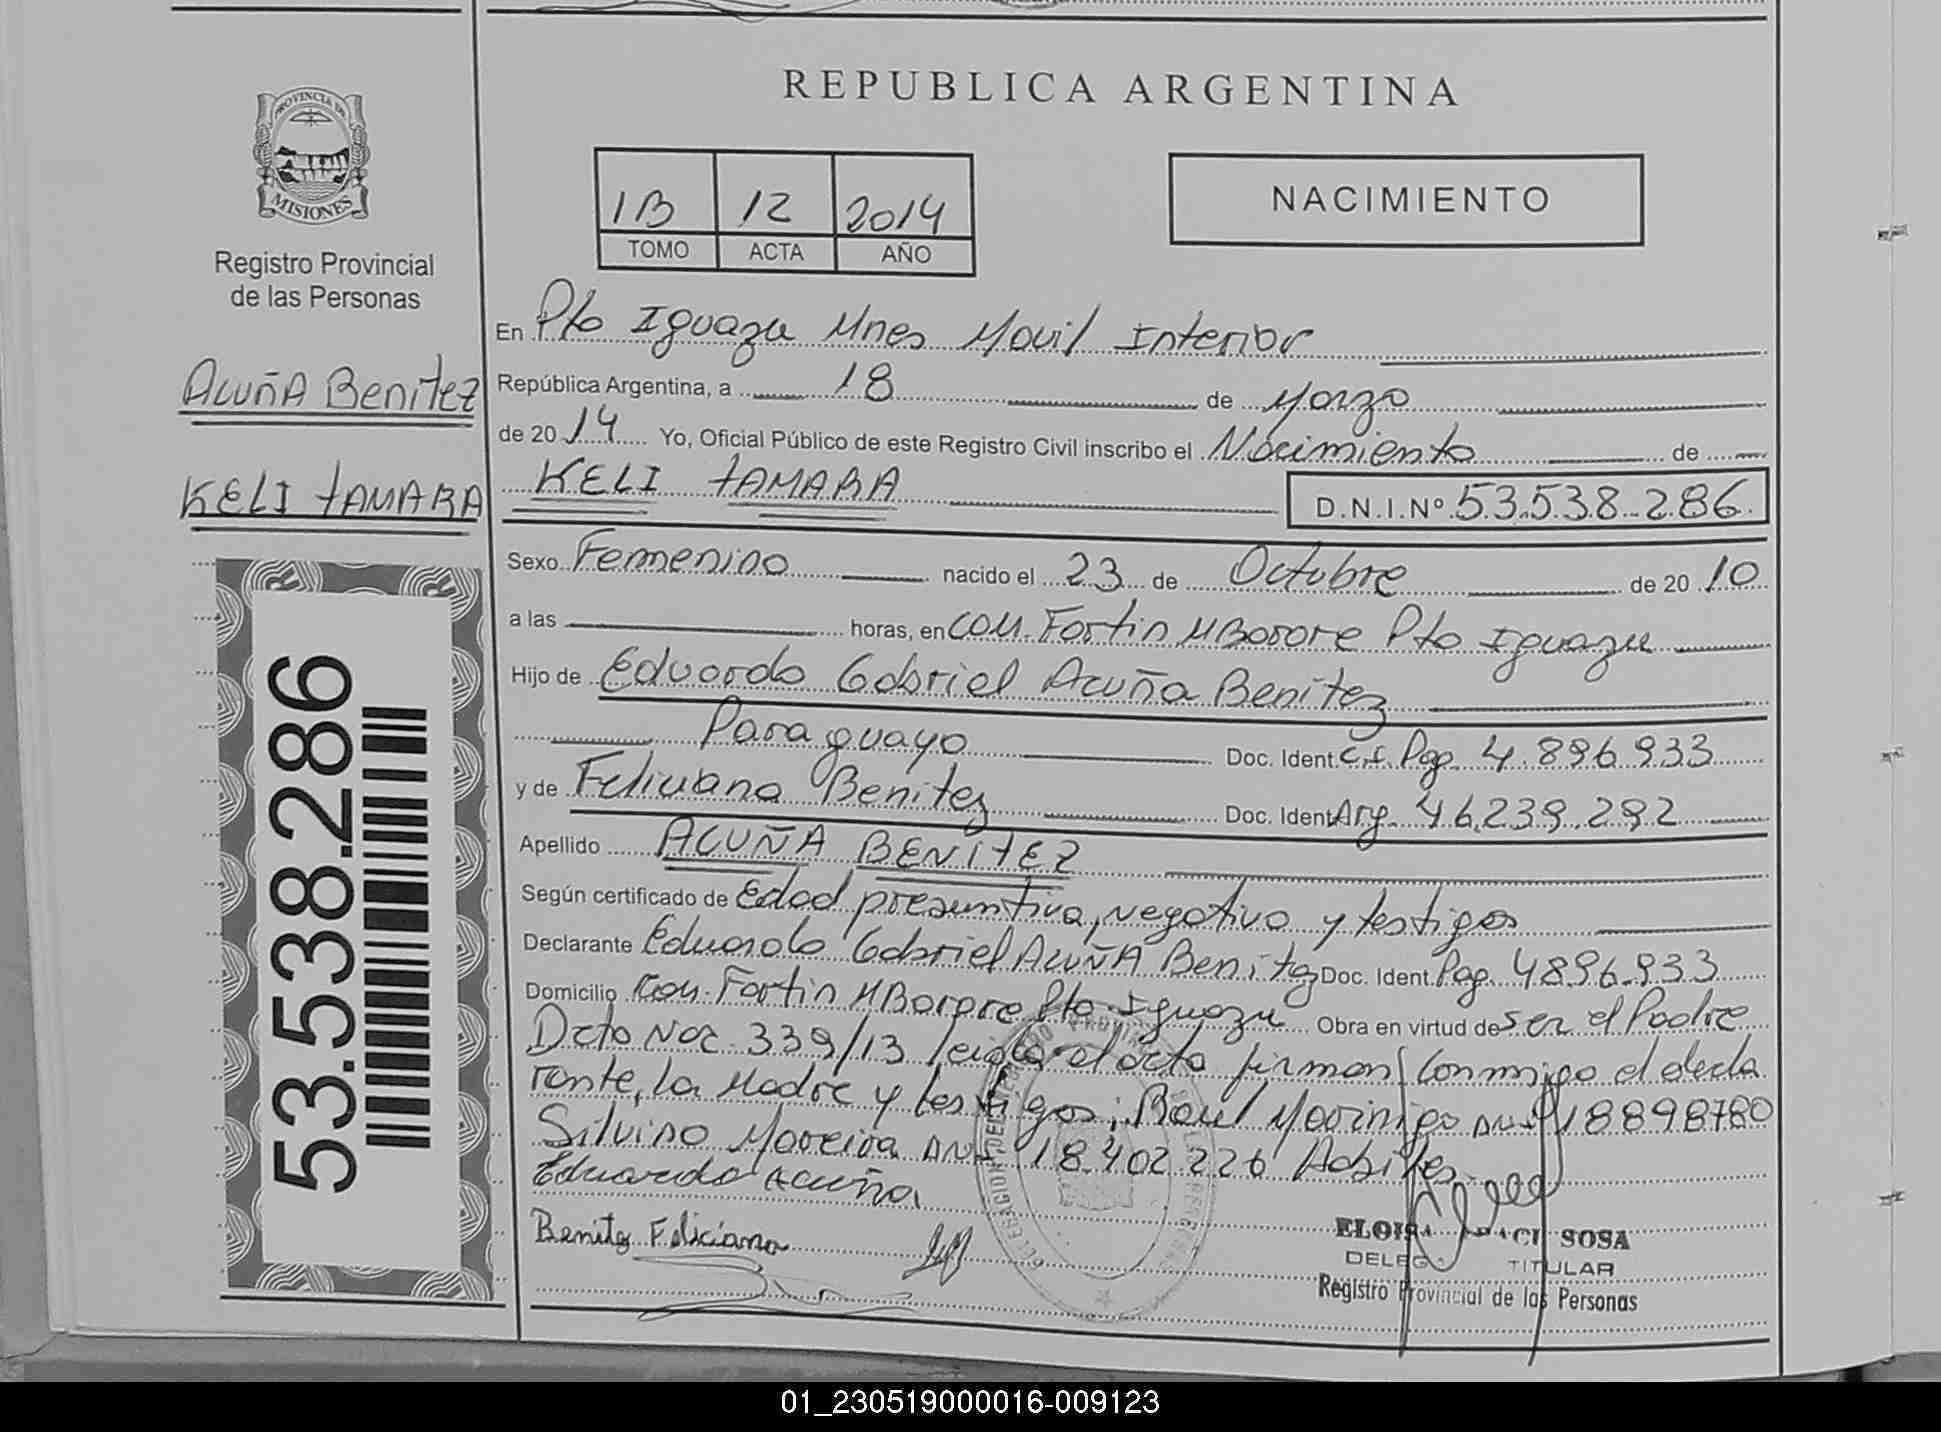 REPUBLICA ARGENTINA
PROVINCIA DE
MISIONES
Registro Provincial
de las Personas
ACUÑA BENITEZ
KELI TAMARA
53.538.286
1B 12 2014
TOMO ACTA AÑO
NACIMIENTO
En Pto Iguazu Mnes Movil Interior
República Argentina, a 18 de Marzo
de 2014 Yo, Oficial Público de este Registro Civil inscribo el Nacimiento de
KELI TAMARA D.N.I.Nº 53.538.286
Sexo Femenino nacido el 23 de Octubre de 2010
a las horas, en com. Fortin MBorore Pto Iguazu
Hijo de Eduardo Gabriel Acuña Benitez
Paraguayo Doc. Ident. C.I. Pag. 4.896.933
y de Feliciana Benitez Doc. Ident Arg. 46.239.292
Apellido ACUÑA BENITEZ
Según certificado de Edad presuntiva, negativo y testigos
Declarante Eduardo Gabriel ACUÑA Benitez Doc. Ident. Pag. 4896.933
Domicilio Com. Fortin MBorore Pto Iguazu Obra en virtud de ser el Padre
Dcto Nac. 339/13 leida el acta firman conmigo el decla
rante, la Madre y testigos; Raul Morinigo DNI 18898780
Silvino Moreira DNI 18.402.226
Eduardo acuña
Benitez Feliciana
ELOISA SOSA
DELEG TITULAR
Registro Provincial de las Personas
01_230519000016-009123